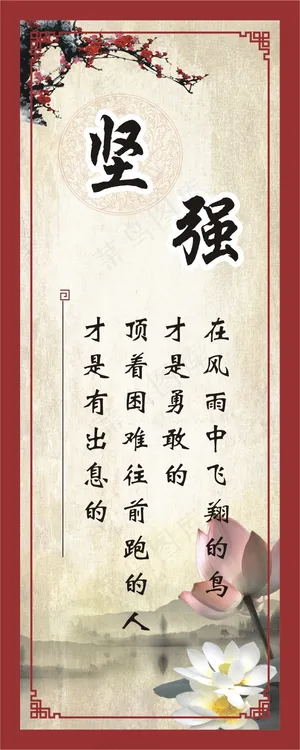 坚强
在风雨中飞翔的鸟
才是勇敢的
顶着困难往前跑的人
才是有出息的